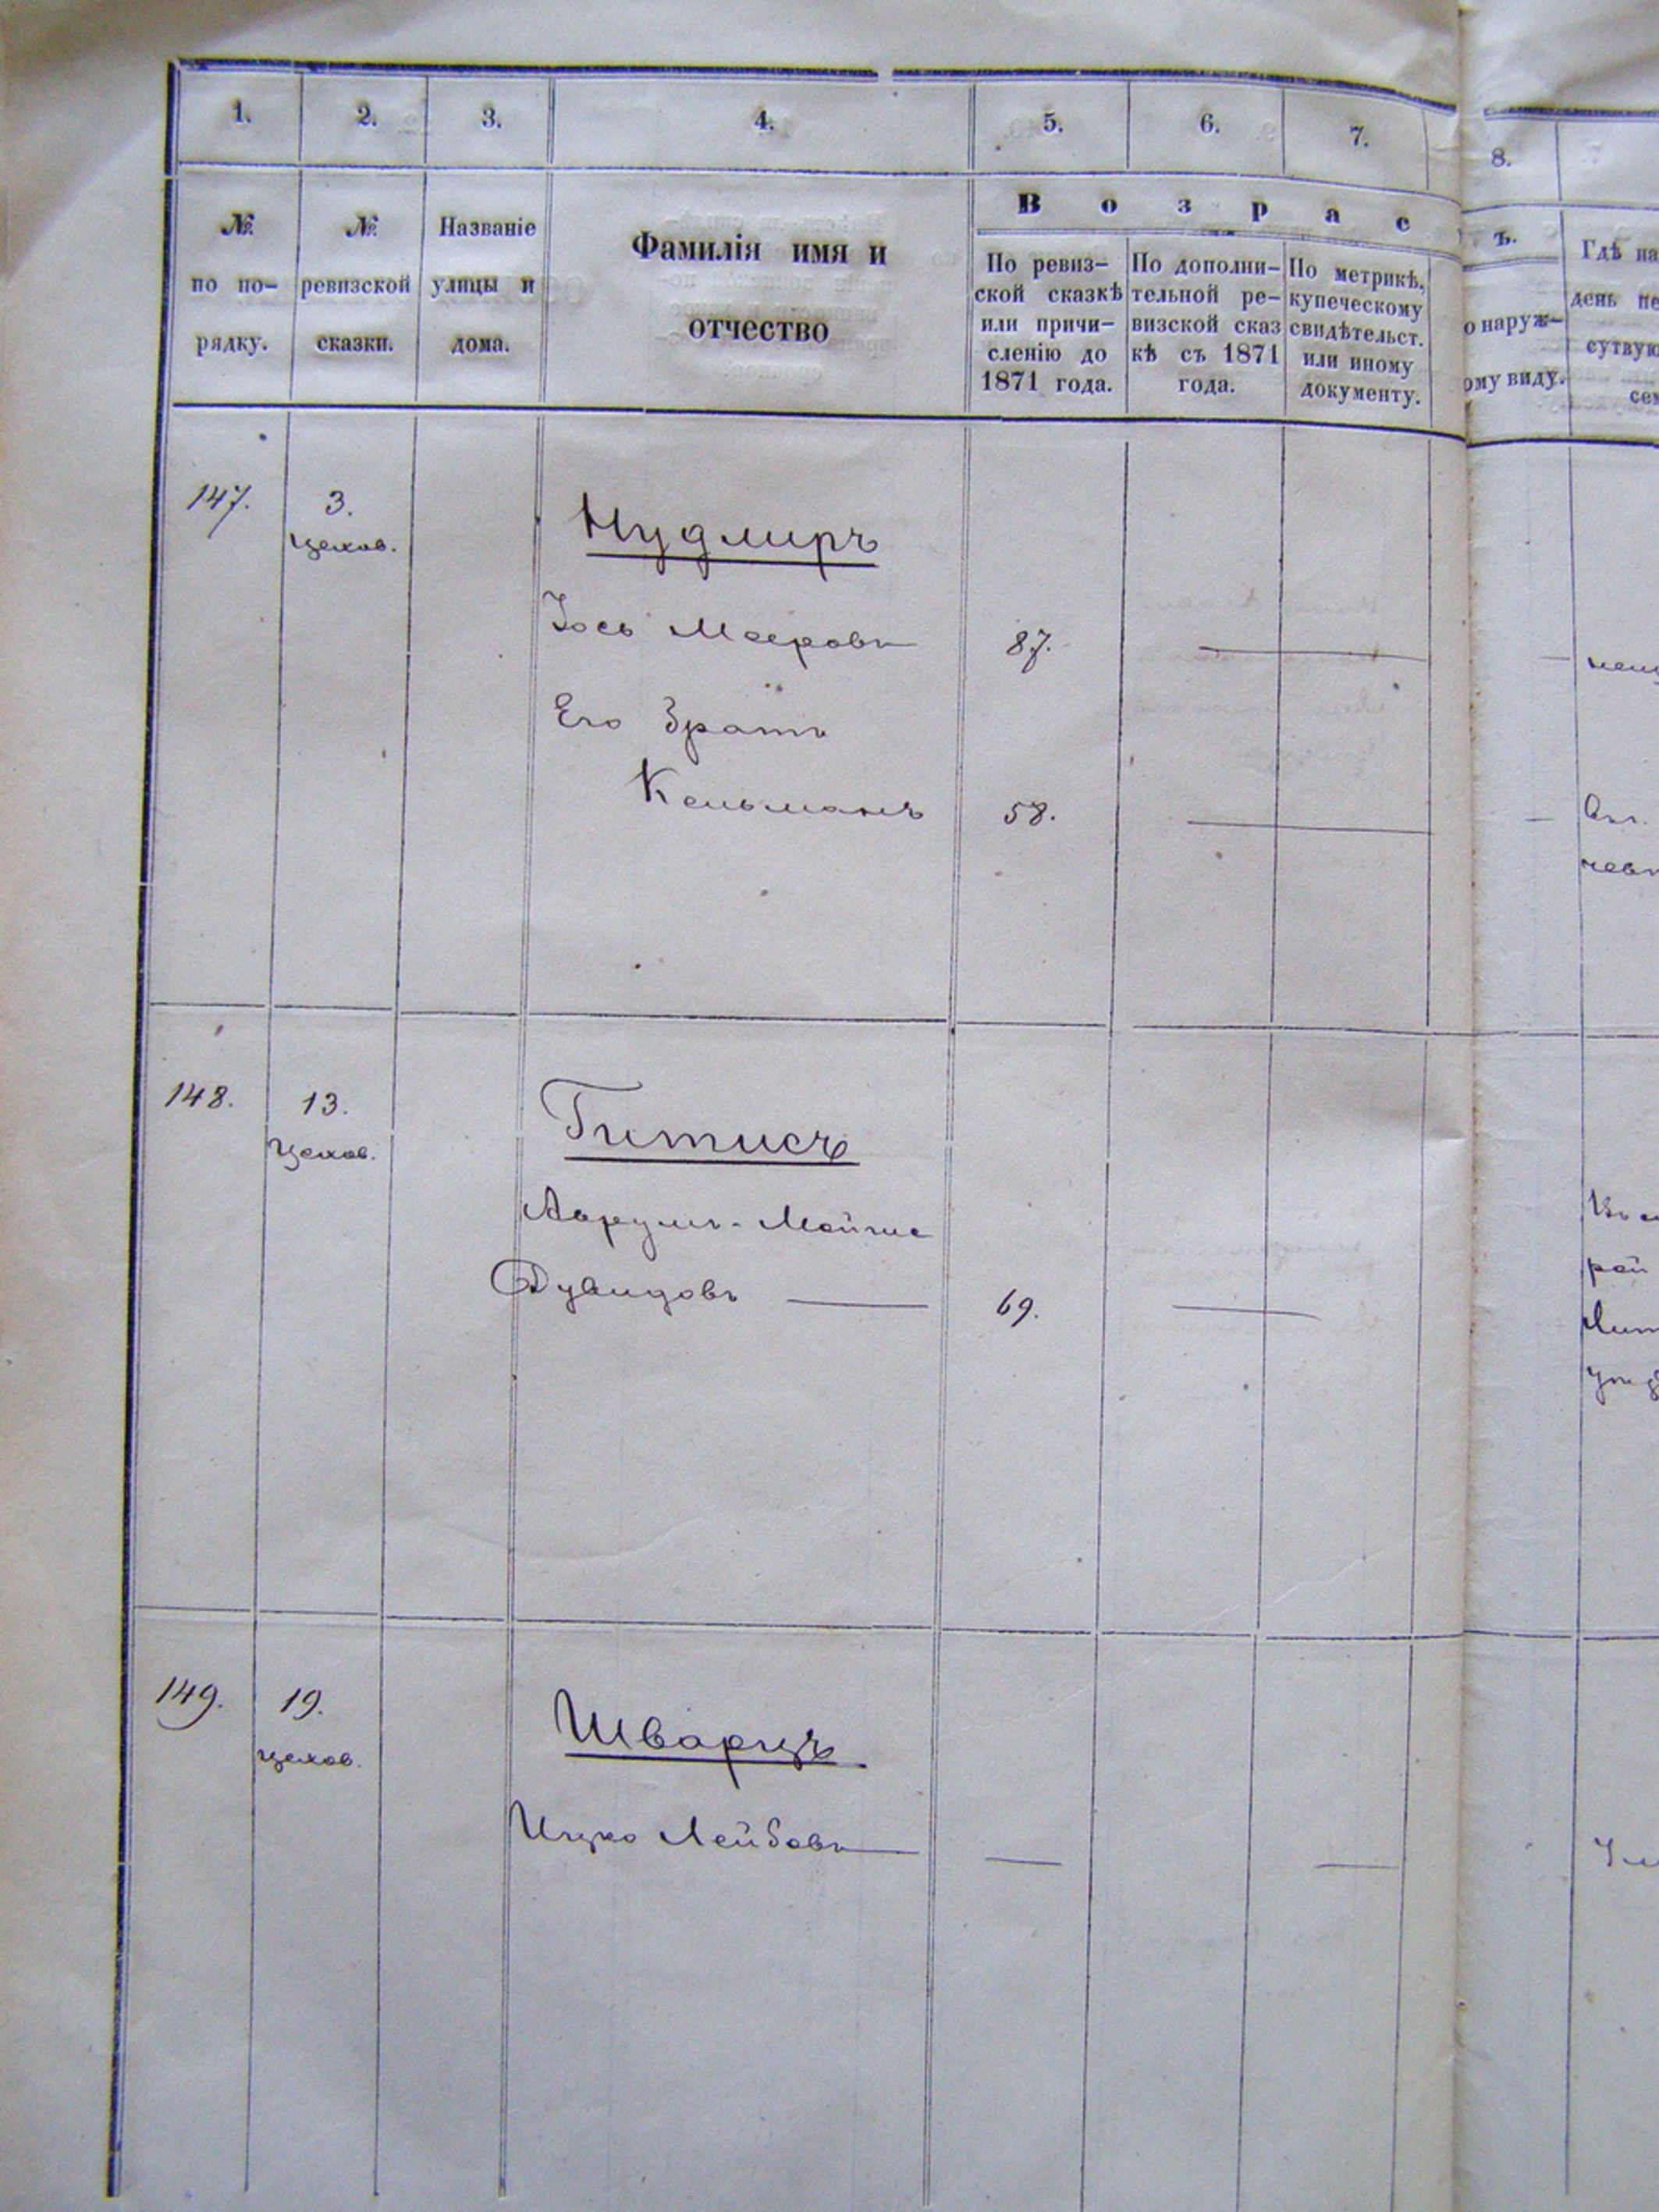 1. 2. 3. 4. 5. 6. 7. 8.
№ по по-рядку.
№ ревизской сказки.
Названіе улицы и дома.
Фамилія имя и
отчество
Возрас
ъ.
По ревиз-
ской сказкѣ
или причи-
сленію до
1871 года.
По дополни-
тельной ре-
визской сказ
кѣ съ 1871
года.
По метрикѣ,
купеческому
свидѣтельст.
или иному
документу.
о наруж-
ому виду.
Гдѣ на
день
сутвую
147. 3. Нудлиръ
Цехов.
Іось Мееровъ 87.
Его братъ
Кельманъ 58.
148. 13. Гитисъ
Цехов.
Аврумъ-Мойше
Дувидовъ 69.
149. 19. Шварцъ
Цехов.
Ицко Лейбовъ